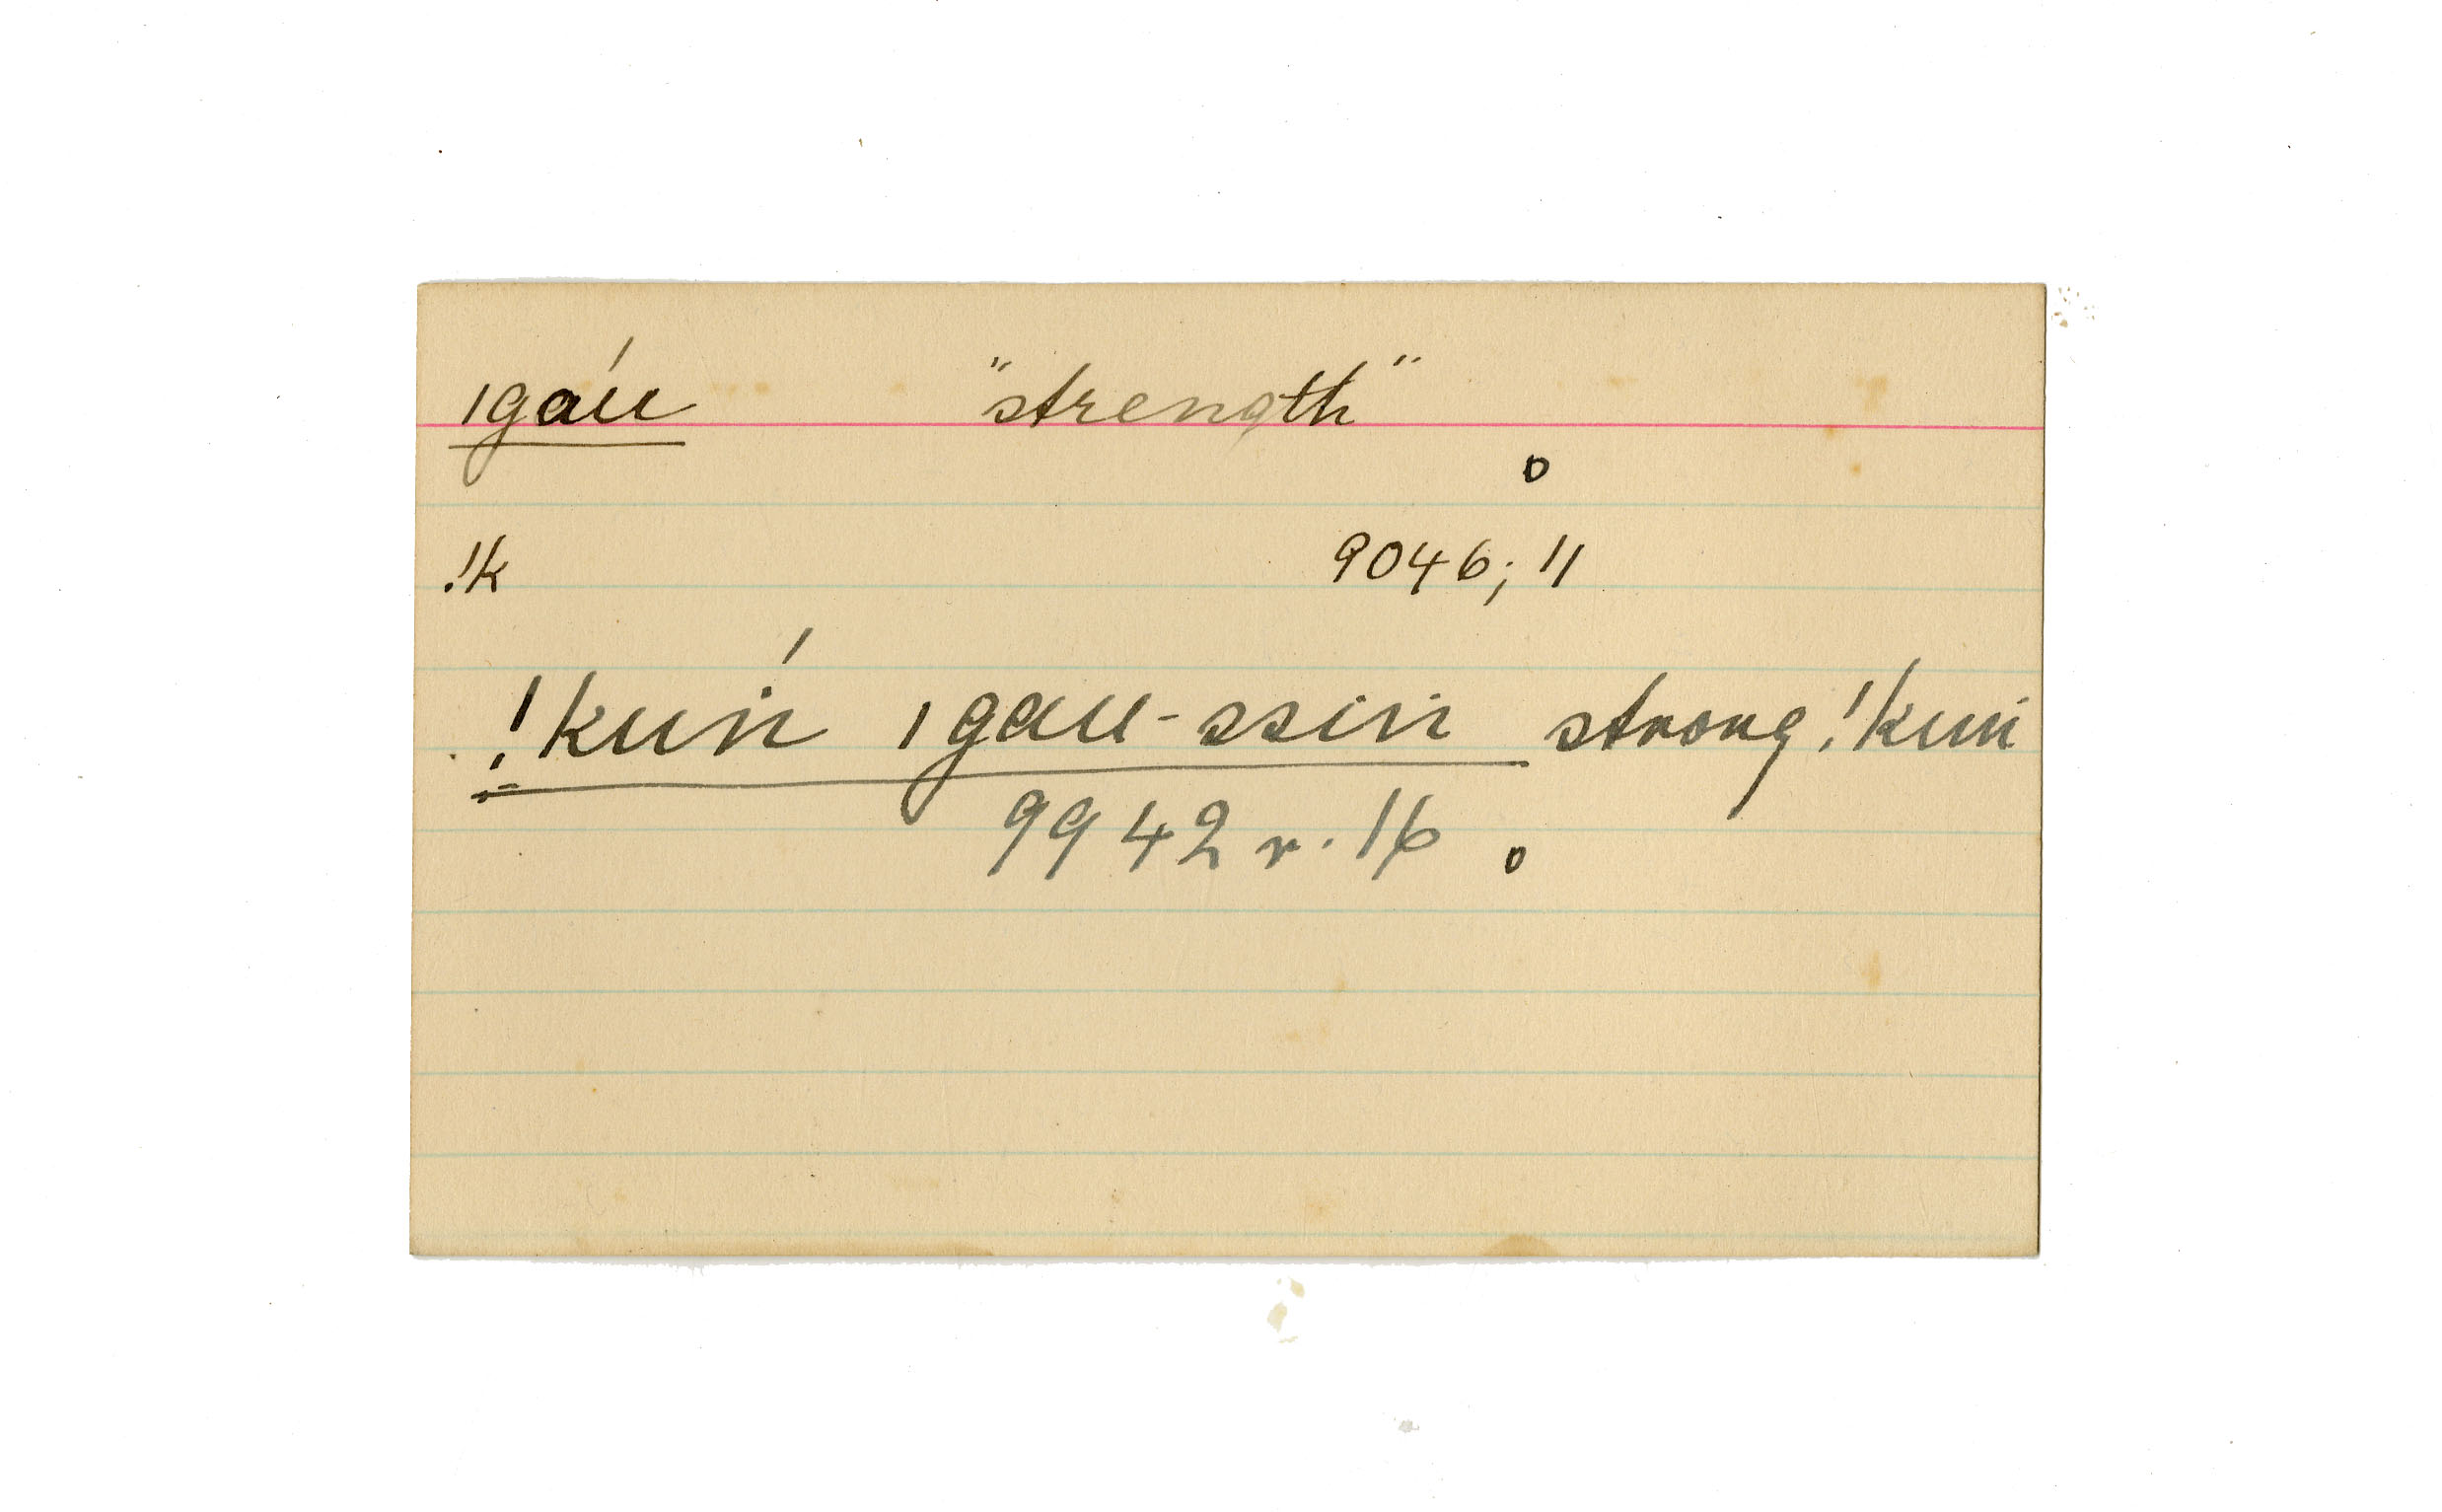 ıgáu "strength"
o
!k 9046; 11
!kuṅ́ ıgau-ssiṅ strong !kuṅ
9942 r. 16 o